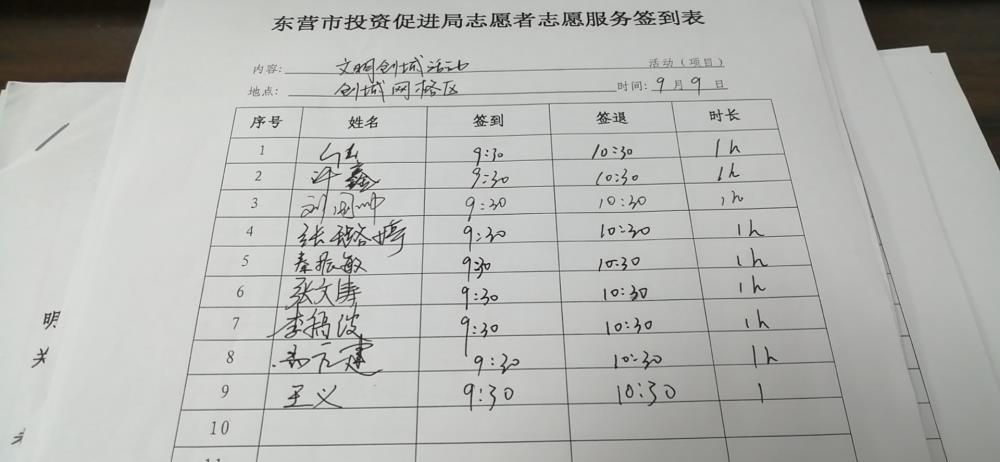 东营市投资促进局志愿者志愿服务签到表
内容: 文明创城活动 活动(项目)
地点: 创城网格区 时间: 9 月 9 日
序号 姓名 签到 签退 时长
1 9:30 10:30 1h
2 许鑫 9:30 10:30 1h
3 刘 9:30 10:30 1h
4 张 婷 9:30 10:30 1h
5 秦振敏 9:30 10:30 1h
6 张文涛 9:30 10:30 1h
7 李 波 9:30 10:30 1h
8 建 9:30 10:30 1h
9 王义 9:30 10:30 1
10
11
明
关